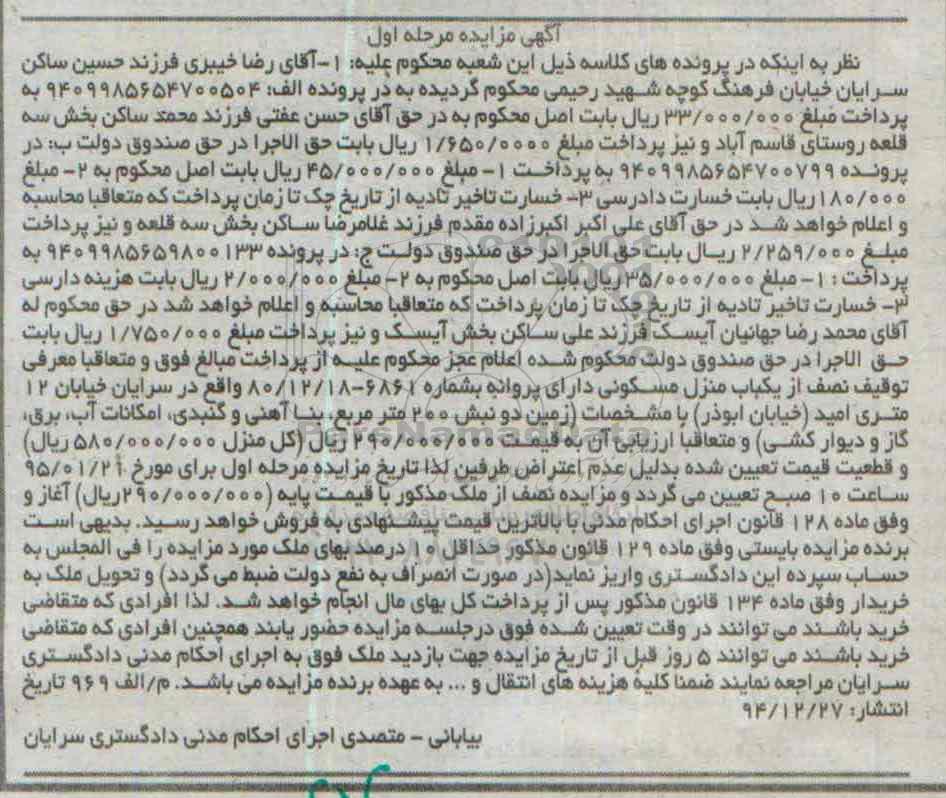 آگهی مزایده مرحله اول
نظر به اینکه در پرونده های کلاسه ذیل این شعبه محکوم علیه: ۱-آقای رضا خیبری فرزند حسین ساکن
سرایان خیابان فرهنگ کوچه شهید رحیمی محکوم گردیده به در پرونده الف: ۹۴۰۹۹۸۵۶۵۴۷۰۰۵۰۴ به
پرداخت مبلغ ۳۳/۰۰۰/۰۰۰ ریال بابت اصل محکوم به در حق آقای حسن عفتی فرزند محمد ساکن بخش سه
قلعه روستای قاسم آباد و نیز پرداخت مبلغ ۱/۶۵۰/۰۰۰۰ ریال بابت حق الاجرا در حق صندوق دولت ب: در
پرونده ۹۴۰۹۹۸۵۶۵۴۷۰۰۷۹۹ به پرداخت ۱- مبلغ ۴۵/۰۰۰/۰۰۰ ریال بابت اصل محکوم به ۲- مبلغ
۱۸۰/۰۰۰ ریال بابت خسارت دادرسی ۳- خسارت تاخیر تادیه از تاریخ چک تا زمان پرداخت که متعاقبا محاسبه
و اعلام خواهد شد در حق آقای علی اکبر اکبرزاده مقدم فرزند غلامرضا ساکن بخش سه قلعه و نیز پرداخت
مبلغ ۲/۲۵۹/۰۰۰ ریال بابت حق الاجرا در حق صندوق دولت ج: در پرونده ۹۴۰۹۹۸۵۶۵۹۸۰۰۱۳۳ به
پرداخت: ۱- مبلغ ۳۵/۰۰۰/۰۰۰ ریال بابت اصل محکوم به ۲- مبلغ ۲/۰۰۰/۰۰۰ ریال بابت هزینه دارسی
۳- خسارت تاخیر تادیه از تاریخ چک تا زمان پرداخت که متعاقبا محاسبه و اعلام خواهد شد در حق محکوم له
آقای محمد رضا جهانیان آیسک فرزند علی ساکن بخش آیسک و نیز پرداخت مبلغ ۱/۷۵۰/۰۰۰ ریال بابت
حق الاجرا در حق صندوق دولت محکوم شده اعلام عجز محکوم علیه از پرداخت مبالغ فوق و متعاقبا معرفی
توقیف نصف از یکباب منزل مسکونی دارای پروانه بشماره ۶۸۶۱-۸۰/۱۲/۱۸ واقع در سرایان خیابان ۱۲
متری امید (خیابان ابوذر) با مشخصات (زمین دو نبش ۲۰۰ متر مربع، بنا آهنی و گنبدی، امکانات آب، برق،
گاز و دیوار کشی) و متعاقبا ارزیابی آن به قیمت ۲۹۰/۰۰۰/۰۰۰ ریال (کل منزل ۵۸۰/۰۰۰/۰۰۰ ریال)
و قطعیت قیمت تعیین شده بدلیل عدم اعتراض طرفین لذا تاریخ مزایده مرحله اول برای مورخ ۹۵/۰۱/۲۱
ساعت ۱۰ صبح تعیین می گردد و مزایده نصف از ملک مذکور با قیمت پایه (۲۹۰/۰۰۰/۰۰۰ریال) آغاز و
وفق ماده ۱۲۸ قانون اجرای احکام مدنی با بالاترین قیمت پیشنهادی به فروش خواهد رسید. بدیهی است
برنده مزایده بایستی وفق ماده ۱۲۹ قانون مذکور حداقل ۱۰ درصد بهای ملک مورد مزایده را فی المجلس به
حساب سپرده این دادگستری واریز نماید(در صورت انصراف به نفع دولت ضبط می گردد) و تحویل ملک به
خریدار وفق ماده ۱۳۴ قانون مذکور پس از پرداخت کل بهای مال انجام خواهد شد. لذا افرادی که متقاضی
خرید باشند می توانند در وقت تعیین شده فوق در جلسه مزایده حضور یابند همچنین افرادی که متقاضی
خرید باشند می توانند ۵ روز قبل از تاریخ مزایده جهت بازدید ملک فوق به اجرای احکام مدنی دادگستری
سرایان مراجعه نمایند ضمنا کلیه هزینه های انتقال و ... به عهده برنده مزایده می باشد. م/الف ۹۶۹ تاریخ
انتشار: ۹۴/۱۲/۲۷
بیابانی - متصدی اجرای احکام مدنی دادگستری سرایان